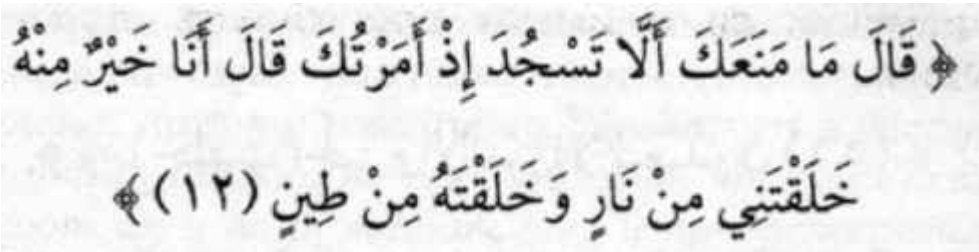 ﴿ قَالَ مَا مَنَعَكَ أَلَّا تَسْجُدَ إِذْ أَمَرْتُكَ قَالَ أَنَا خَيْرٌ مِنْهُ
خَلَقْتَنِي مِنْ نَارٍ وَخَلَقْتَهُ مِنْ طِينٍ (١٢) ﴾